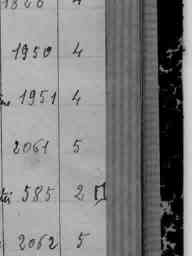 1950 4
1951 4
2061 5
585 2
2062 5